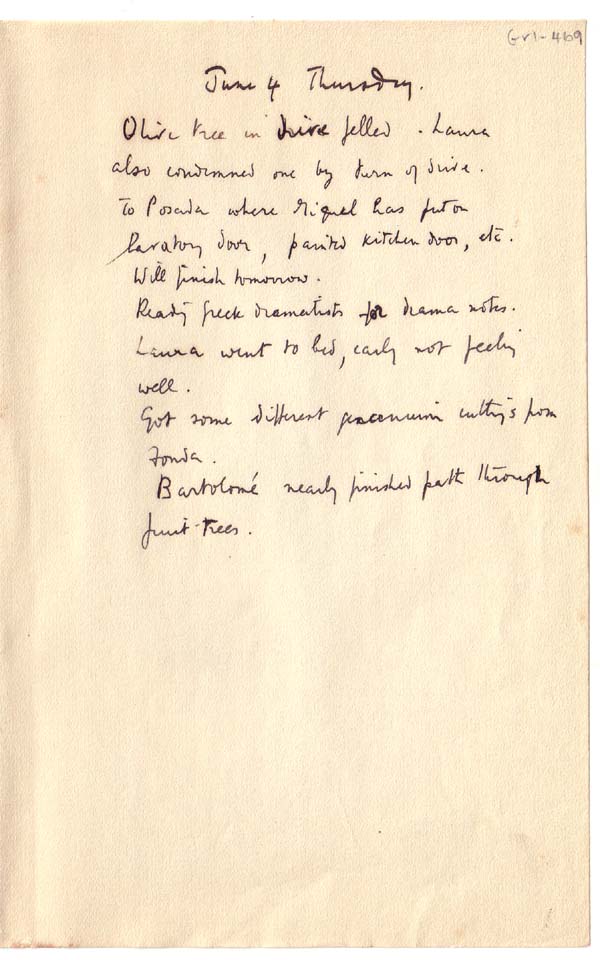 Gr1-469
June 4 Thursday.
Olive tree in drive felled. Laura
also condemned one by turn of drive.
To Posada where Miguel has put on
lavatory door, painted kitchen door, etc.
Will finish tomorrow.
Reading Greek dramatists for drama notes.
Laura went to bed, early not feeling
well.
Got some different geranium cuttings from
Fonda.
Bartolomé nearly finished path through
fruit-trees.